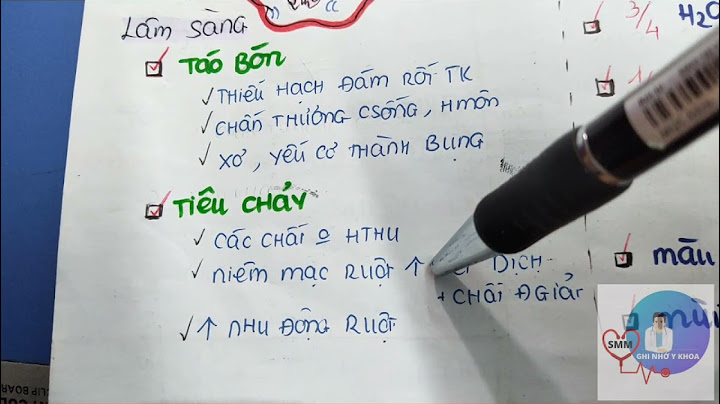 Lâm sàng
Táo Bón
Thiếu hạch đám rối TK
Chấn thương csống, hmôn
Xơ, yếu cơ thành bụng
Tiêu chảy
Các chất o hthu
niêm mạc ruột ↑ dịch
+ chất đgiải
↑ nhu động ruột
3/4 H2O
màu
mùi
SMM
GHI NHỚ Y KHOA